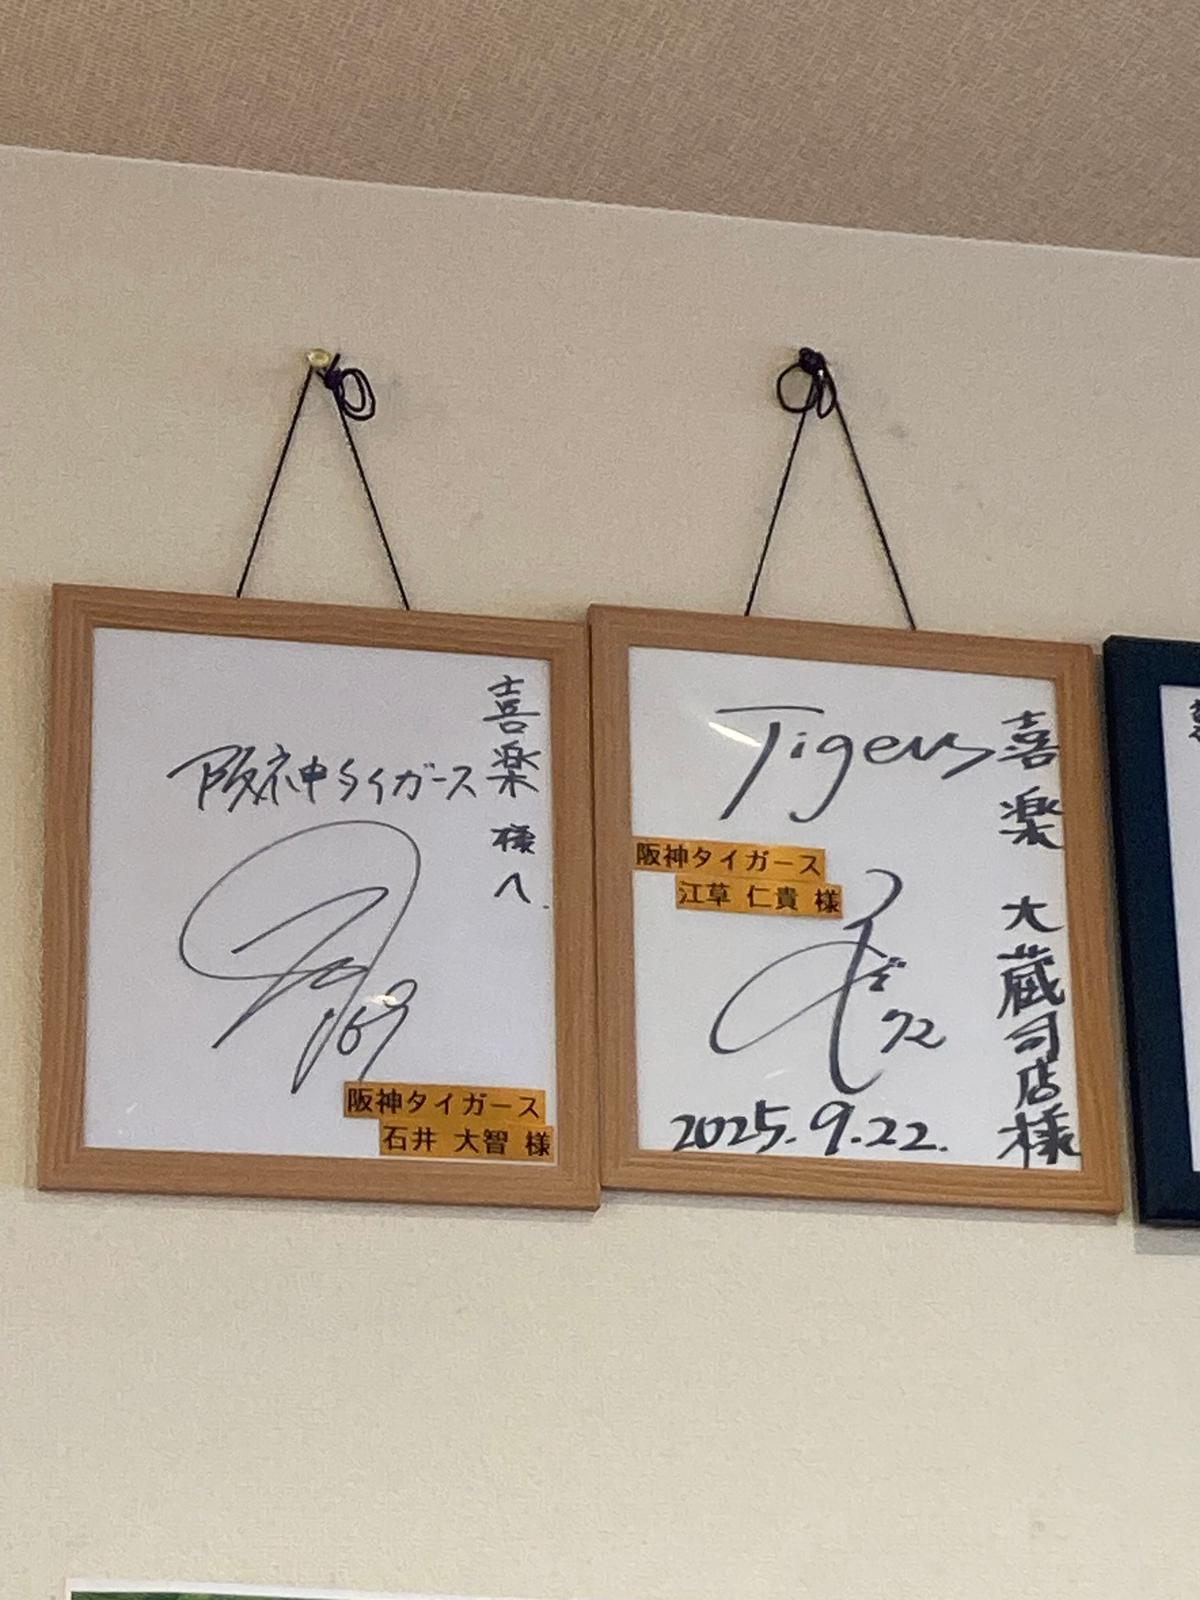 喜楽様へ
阪神タイガース
69
阪神タイガース
石井 大智 様
喜楽 大蔵司店様
Tigers
阪神タイガース
江草 仁貴 様
72
2025.9.22.